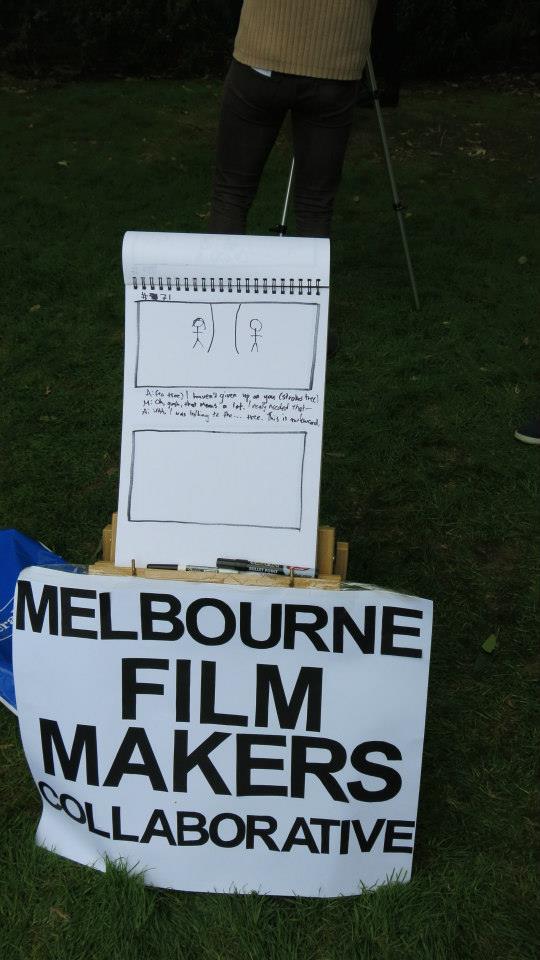 71
A: (to tree) I haven't given up on you (strokes tree)
M: Oh, gosh, that means a lot. I really needed that—
A: Uhh, I was talking to the... tree. This is awkward.
BULLET POINT
MELBOURNE
FILM
MAKERS
COLLABORATIVE